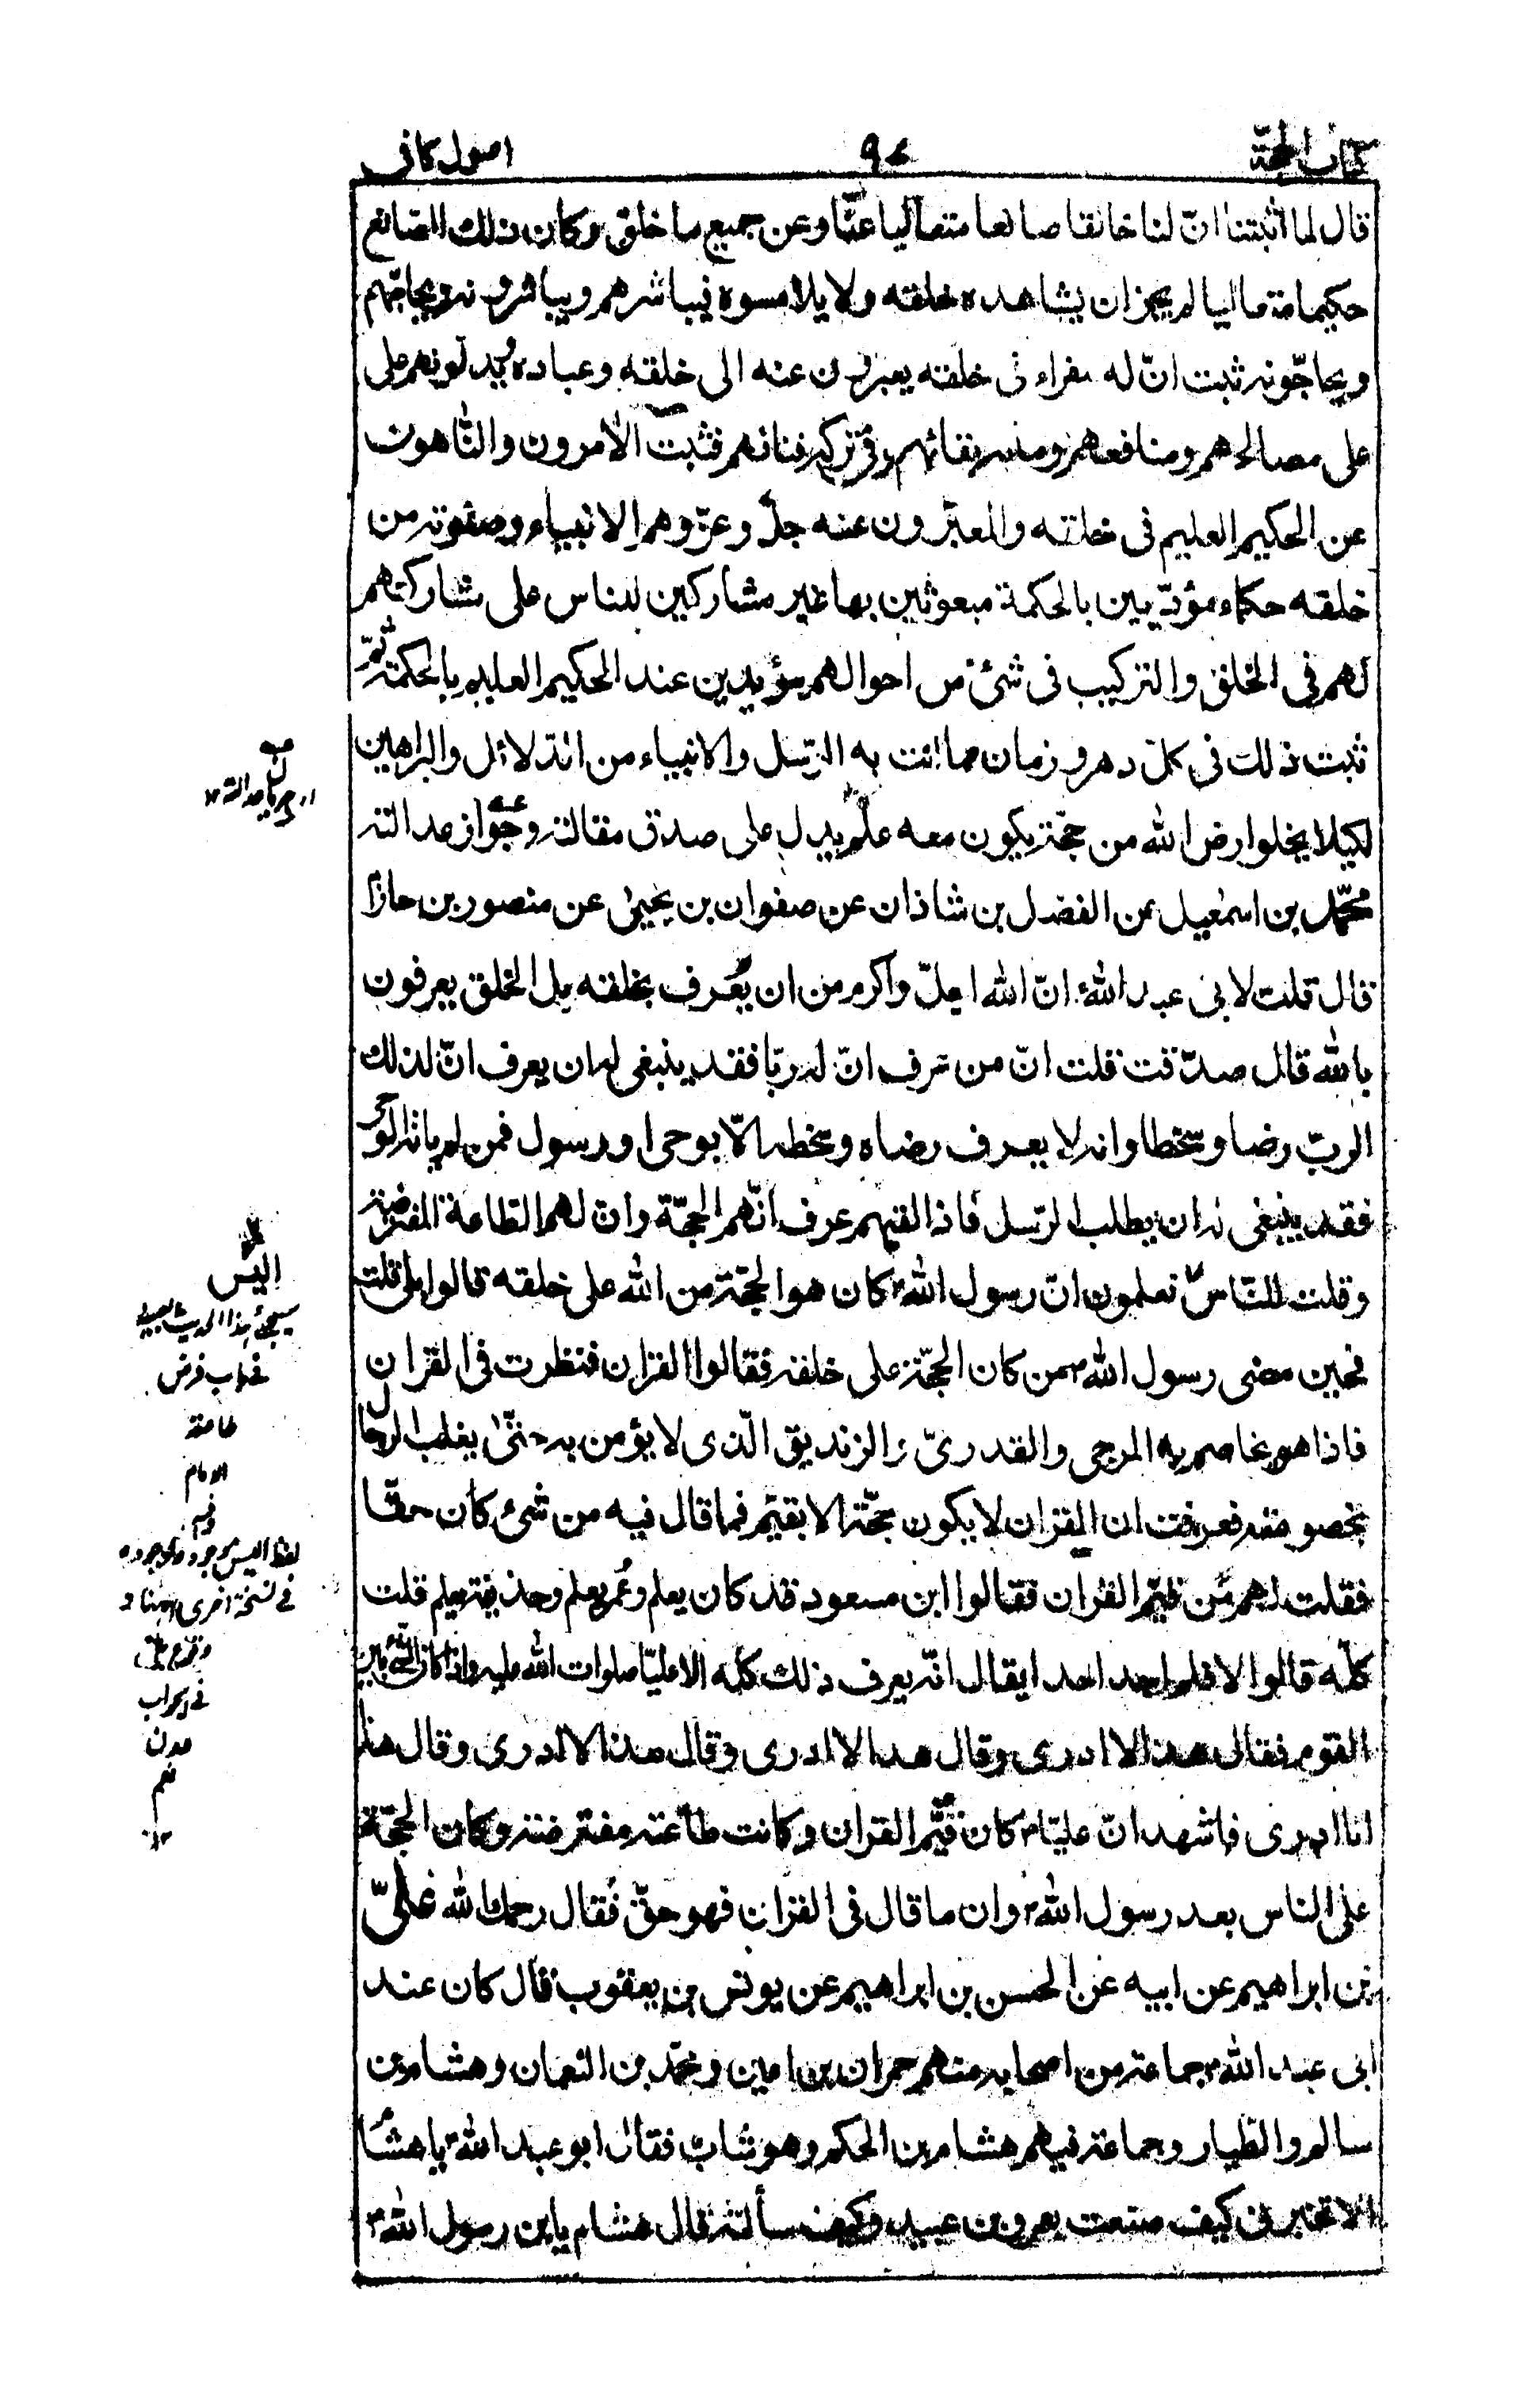 كتاب الحجّة
اصول كافى
قال لما اثبتنا انّ لنا خالقا صانعا متعاليا عنّا وعن جميع ما خلق وكان ذلك الصانع
حكيما متعاليا لم يجز ان يشاهده خلقه ولا يلامسوه فيباشرهم ويباشرونه ويحاجّهم
ويحاجّونه ثبت انّ له سفراء فى خلقه يعبرون عنه الى خلقه وعباده ويدلونهم على
على مصالحهم ومنافعهم وما به بقائهم وفى تركه فنائهم فثبت الآمرون والنّاهون
عن الحكيم العليم فى خلقه والمعبّرون عنه جلّ وعزّ وهم الانبياء وصفوته من
خلقه حكماء مؤدّبين بالحكمة مبعوثين بها غير مشاركين للناس على مشاركتهم
لهم فى الخلق والتركيب فى شئ من احوالهم مؤيدين عند الحكيم العليم بالحكمة ثمّ
ثبت ذلك فى كلّ دهر وزمان مما اتت به الرّسل والانبياء من الدّلائل والبراهين
لكيلا يخلوا رض الله من حجّة يكون معه علم يدل على صدق مقالته وجواز عدالته
محمّد بن اسمعيل عن الفضل بن شاذان عن صفوان بن يحيىٰ عن منصور بن حازم
قال قلت لابى عبد الله انّ الله اجلّ واكرم من ان يُعرف بخلقه بل الخلق يعرفون
بالله قال صدّقت قلت انّ من عرف انّ له ربّا فقد ينبغى له ان يعرف انّ لذلك
الربّ رضا وسخطا وانه لا يعرف رضاه وسخطه الّا بوحى او رسول فمن لم ياته الوحى
فقد ينبغى له ان يطلب الرّسل فاذا لقيهم عرف انّهم الحجّة وانّ لهم الطاعة المفترضة
وقلت للنّاس تعلمون انّ رسول الله كان هو الحجّة من الله على خلقه قالوا بلى قلت
فحين مضى رسول الله من كان الحجّة على خلقه فقالوا القران فنظرت فى القران
فاذا هو يخاصم به المرجى والقدرىّ والزنديق الّذى لا يؤمن به حتّىٰ يغلب الرجال
بخصومته فعرفت ان القران لا يكون حجّة الا بقيّم فما قال فيه من شئ كان حقّا
فقلت لهم مَن قيّم القران فقالوا ابن مسعود قد كان يعلم وعُمر يعلم وحذيفة يعلم قلت
كلّه قالوا لا فلم اجد احدا يقال انّه يعرف ذلك كلّه الا عليّا صلوات الله عليه واذا كان الشئ بين
القوم فقال هذا لا ادرى وقال هذا لا ادرى وقال هذا لا ادرى وقال هذا
انا ادرى فاشهد انّ عليّا كان قيّم القران وكانت طاعته مفترضة وكان الحجّة
على الناس بعد رسول الله وان ما قال فى القران فهو حقّ فقال رحمك الله علىّ
بن ابراهيم عن ابيه عن الحسن بن ابراهيم عن يونس بن يعقوب قال كان عند
ابى عبد الله جماعة من اصحابه منهم حمران بن اعين ومحمّد بن النعمان وهشام بن
سالم والطيار وجماعة فيهم هشام بن الحكم وهو شابّ فقال ابو عبد الله يا هشام
الا تخبرنى كيف صنعت بعمرو بن عبيد وكيف سألته قال هشام يا بن رسول الله
اليس
سيجئ هذا الحديث بعينه
فى باب فرض
طاعة
الامام
فى نسخة اخرى